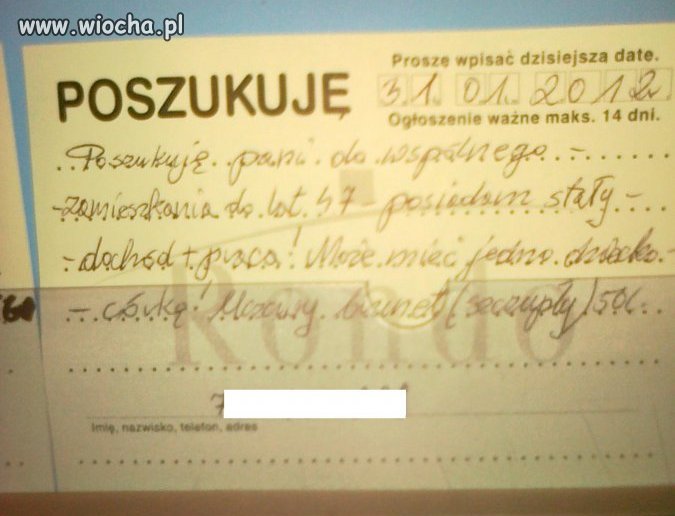 www.wiocha.pl
Proszę wpisać dzisiejszą datę.
POSZUKUJĘ
31.01.2012r
Ogłoszenie ważne maks. 14 dni.
Poszukuję pani do wspólnego
zamieszkania do lat 47 - posiadam stały
dochód + praca! Może mieć jedno dziecko
córkę! brunet (szczupły) 50l.
Rondo
7
Imię, nazwisko, telefon, adres